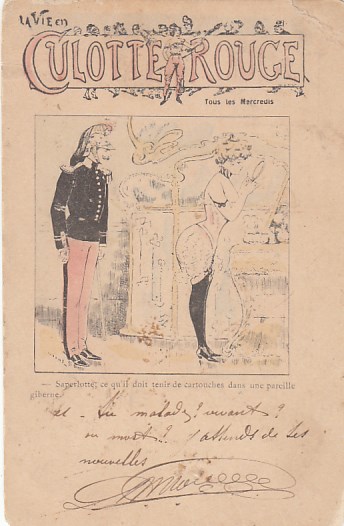 LA VIE en
CULOTTE ROUGE
Tous les Mercredis
— Saperlotte, ce qu'il doit tenir de cartouches dans une pareille
giberne
malade? vivant?
ou mort? J'attends de tes
nouvelles